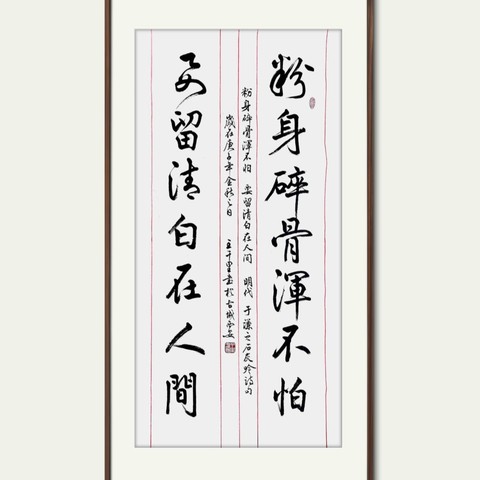 粉身碎骨渾不怕
要留清白在人間
粉身碎骨渾不怕 要留清白在人間 明代 于謙之石灰吟詩句
歲在庚子年金秋之日 王千里書於古城西安